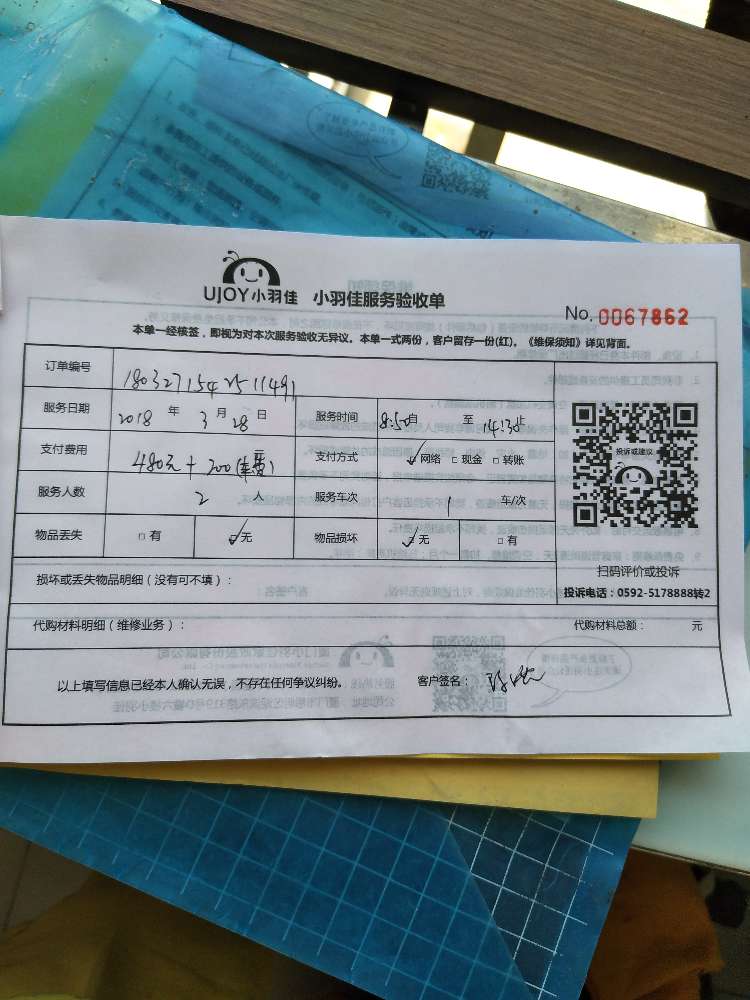 UJOY小羽佳 小羽佳服务验收单
No. 0067862
本单一经核签，即视为对本次服务验收无异议。本单一式两份，客户留存一份(红)。《维保须知》详见背面。
订单编号 1803271542511491
服务日期 2018 年 3 月 28 日 服务时间 8:50 自 至 14:30 止
支付费用 480元+200 支付方式 ☑网络 □现金 □转账
服务人数 2 人 服务车次 1 车/次
物品丢失 □有 ☑无 物品损坏 ☑无 □有
投诉或建议
扫码评价或投诉
投诉电话：0592-5178888转2
损坏或丢失物品明细（没有可不填）：
代购材料明细（维修业务）： 代购材料总额： 元
以上填写信息已经本人确认无误，不存在任何争议纠纷。 客户签名：